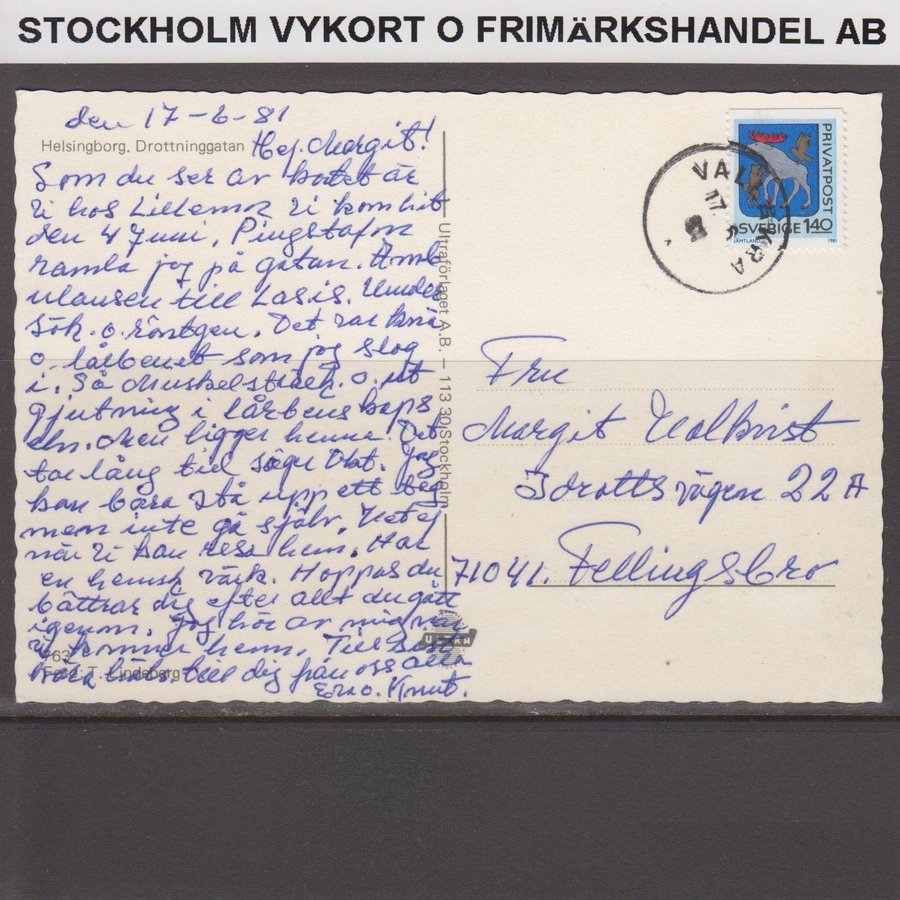 STOCKHOLM VYKORT O FRIMÄRKSHANDEL AB
den 17-6-81
Helsingborg. Drottninggatan
Hej Margit!
Som du ser av kortet är
vi hos Lillemor vi kom hit
den 4 Juni. Pingstafon
ramla jag på gatan. Amb
ulansen till Lasis. Under
sök. o. röntgen. Det var knä
o. lårbenet som jag slog
i. Så Muskelsträck. o. ut
gjutning i lårbens kaps
eln. Men ligger hemma. Det
tar lång tid säger Dkt. Jag
kan bara stå upp ett tag
men inte gå själv. Vet ej
när vi kan resa hem. Har
en hemsk värk. Hoppas du
bättrar dig efter allt du gått
igenom. Jag hör av mig när
vi kommer hem. Till sist
kära häls. till dig från oss alla
Knut.
63
Foto: T. Lindeberg
Ultraförlaget A.B. – 113 30 Stockholm
ULTRA
VALLÅKRA
17
PRIVATPOST
SVERIGE 1.40
JÄMTLAND
1981
Fru
Margit
Idrottsvägen 22A
71041. Fellingsbro